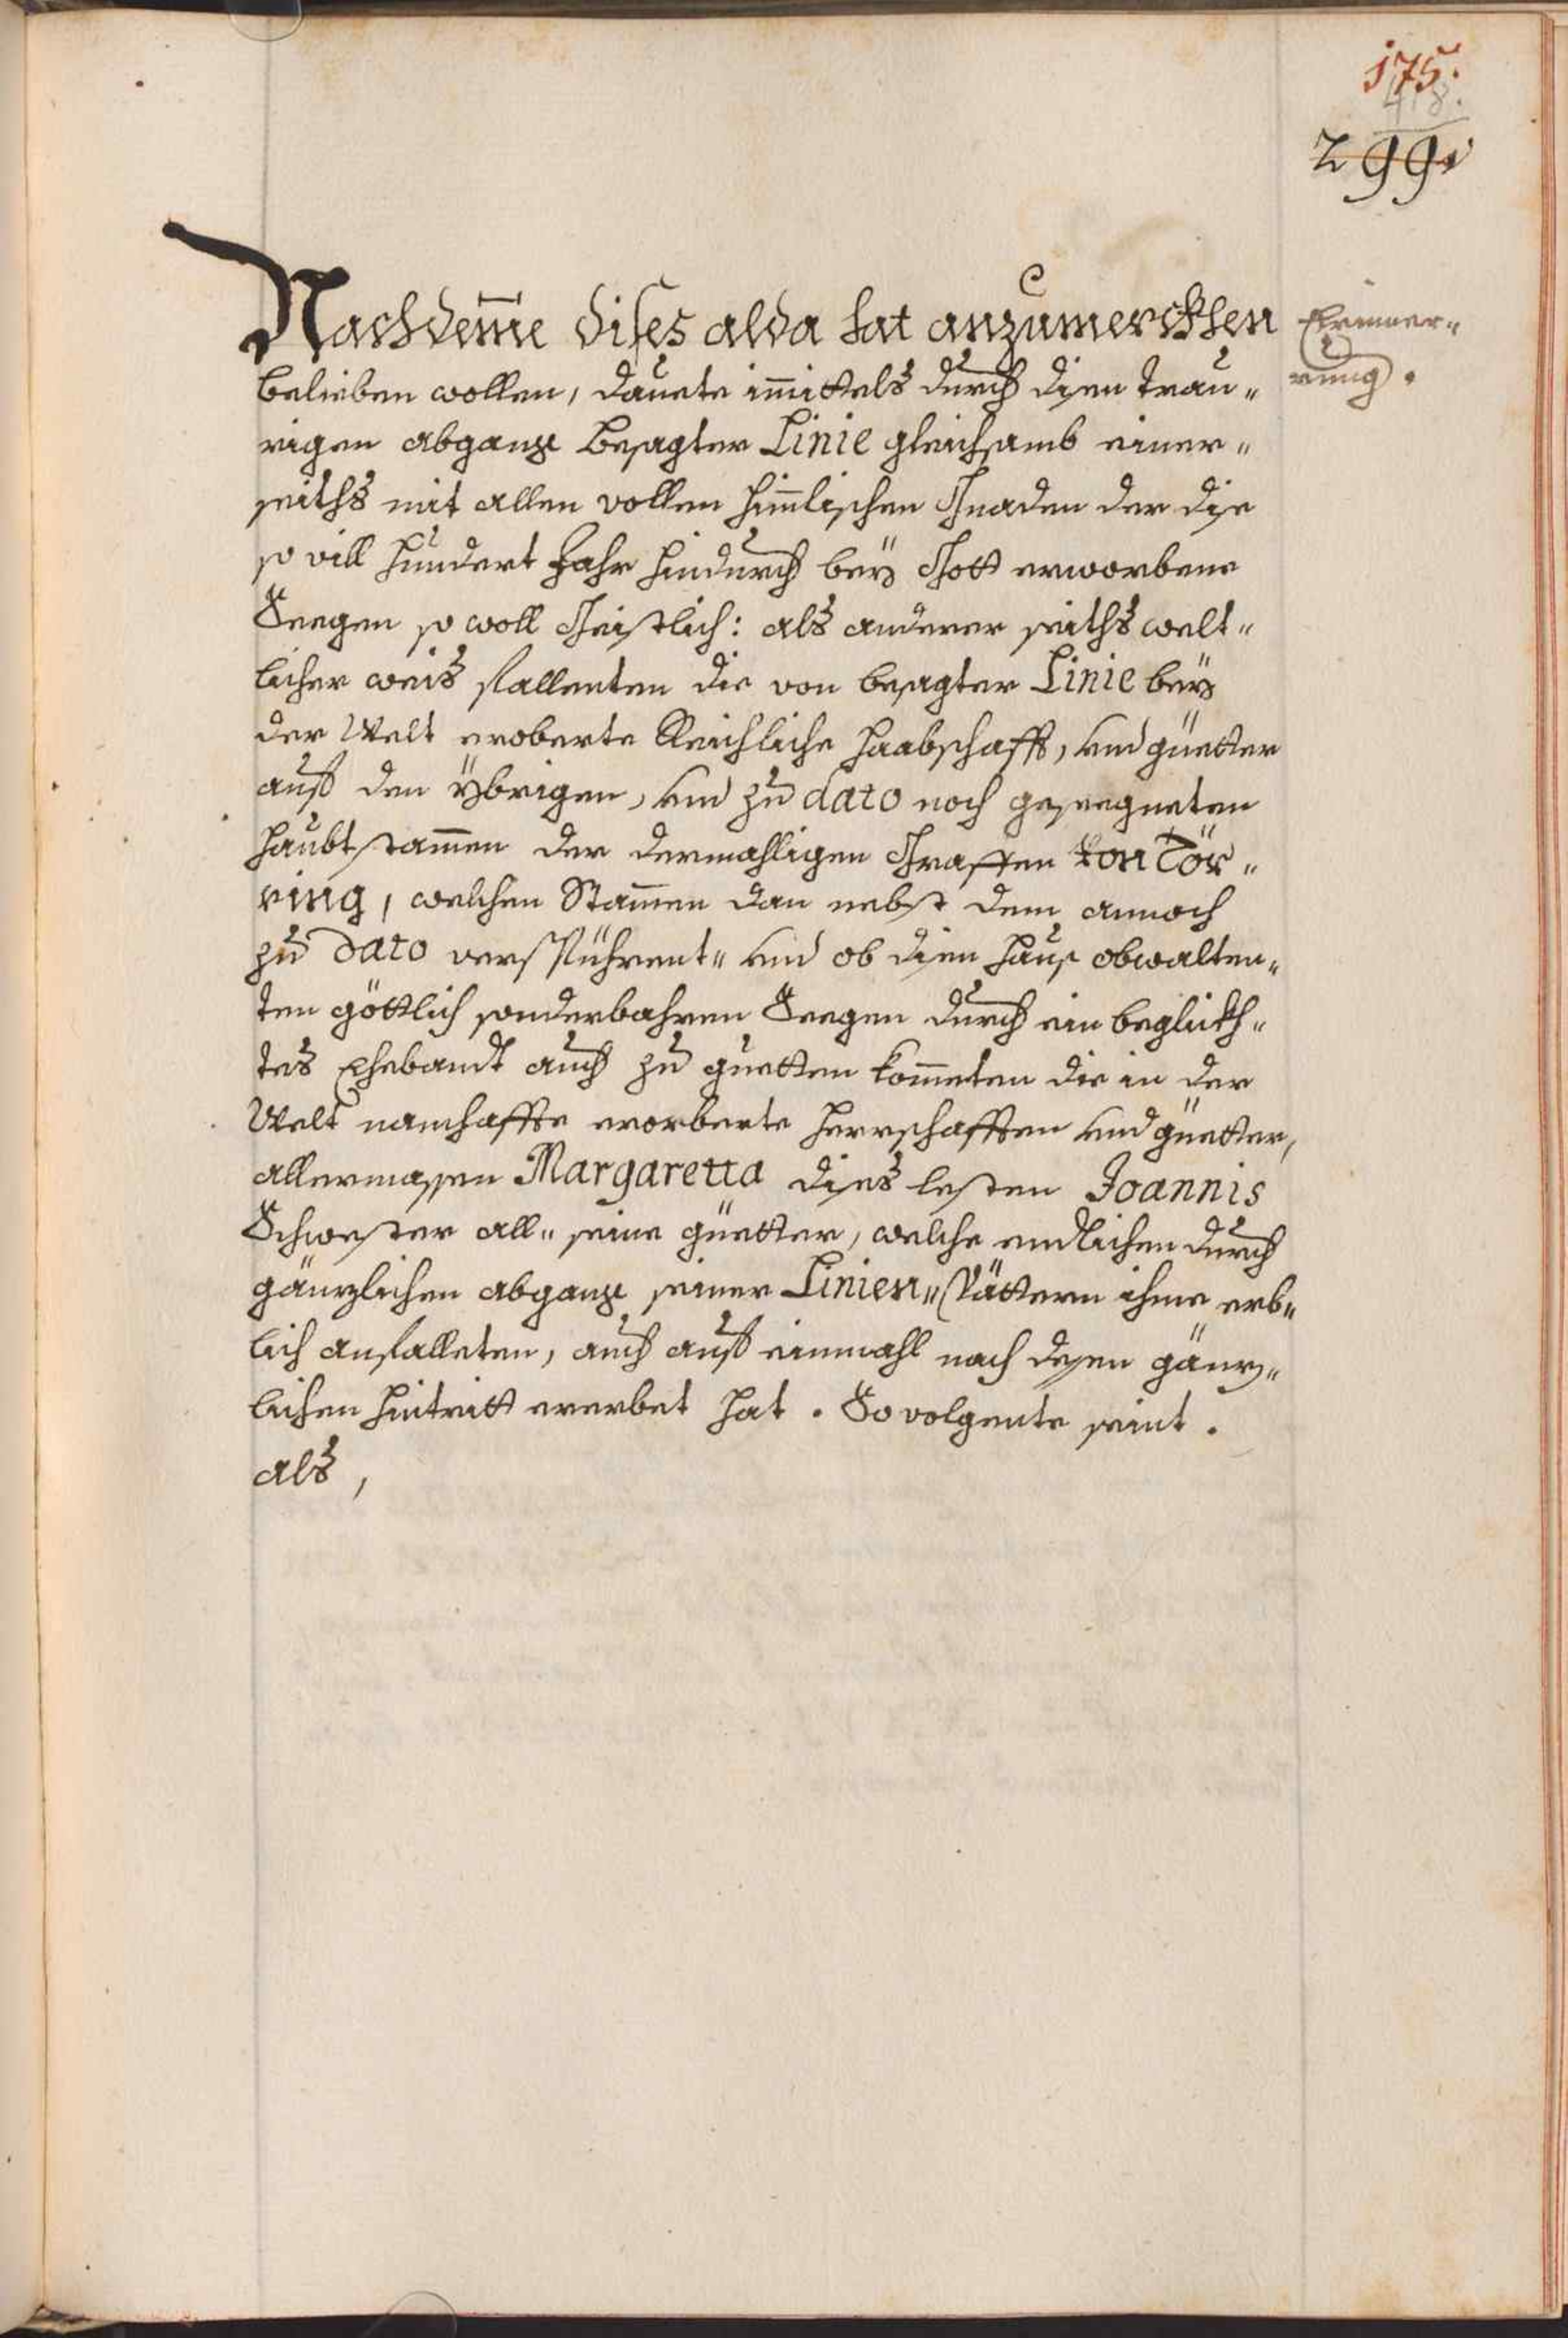 175.
418.
299.
Nachdeme dises alda hat anzumerckhen
Erinner„
belieben wollen, dauete immittels durch disen trau„
rung.
rigen abgang besagter Linie gleichsamb einer„
seiths mit allen vollen himlischen Gnaden der die
so vill hundert Jahr hindurch bey Gott erworbene
Seegen so woll Geistlich: als anderer seiths welt„
licher weis fallenten die von besagter Linie bey
der Welt eroberte Reichliche haabschafft, und güetter
auf den ybrigen, und zu dato noch geseegneten
haubtstammen der dermahligen Graffen von Tör„
ring, welchen Stammen dan nebst dem annoch
zu Dato verspührent„ und ob disem haus obwalten„
ten göttlich sonderbahren Seegen durch ein beglickh„
tes Ehebandt auch zu guetten kommeten die in der
Welt namhaffte erorberte herrschafften und güetter,
allermassen Margaretta dises lesten Joannis
Schwester all„ seine güetter, welche endlichen durch
gänzlichen abgang seiner Linien„ Vättern ihme erb„
lich anfalleten, auch auf einmahl nach desen gänz„
lichen hintritt ererbet hat. So volgente seint.
als,